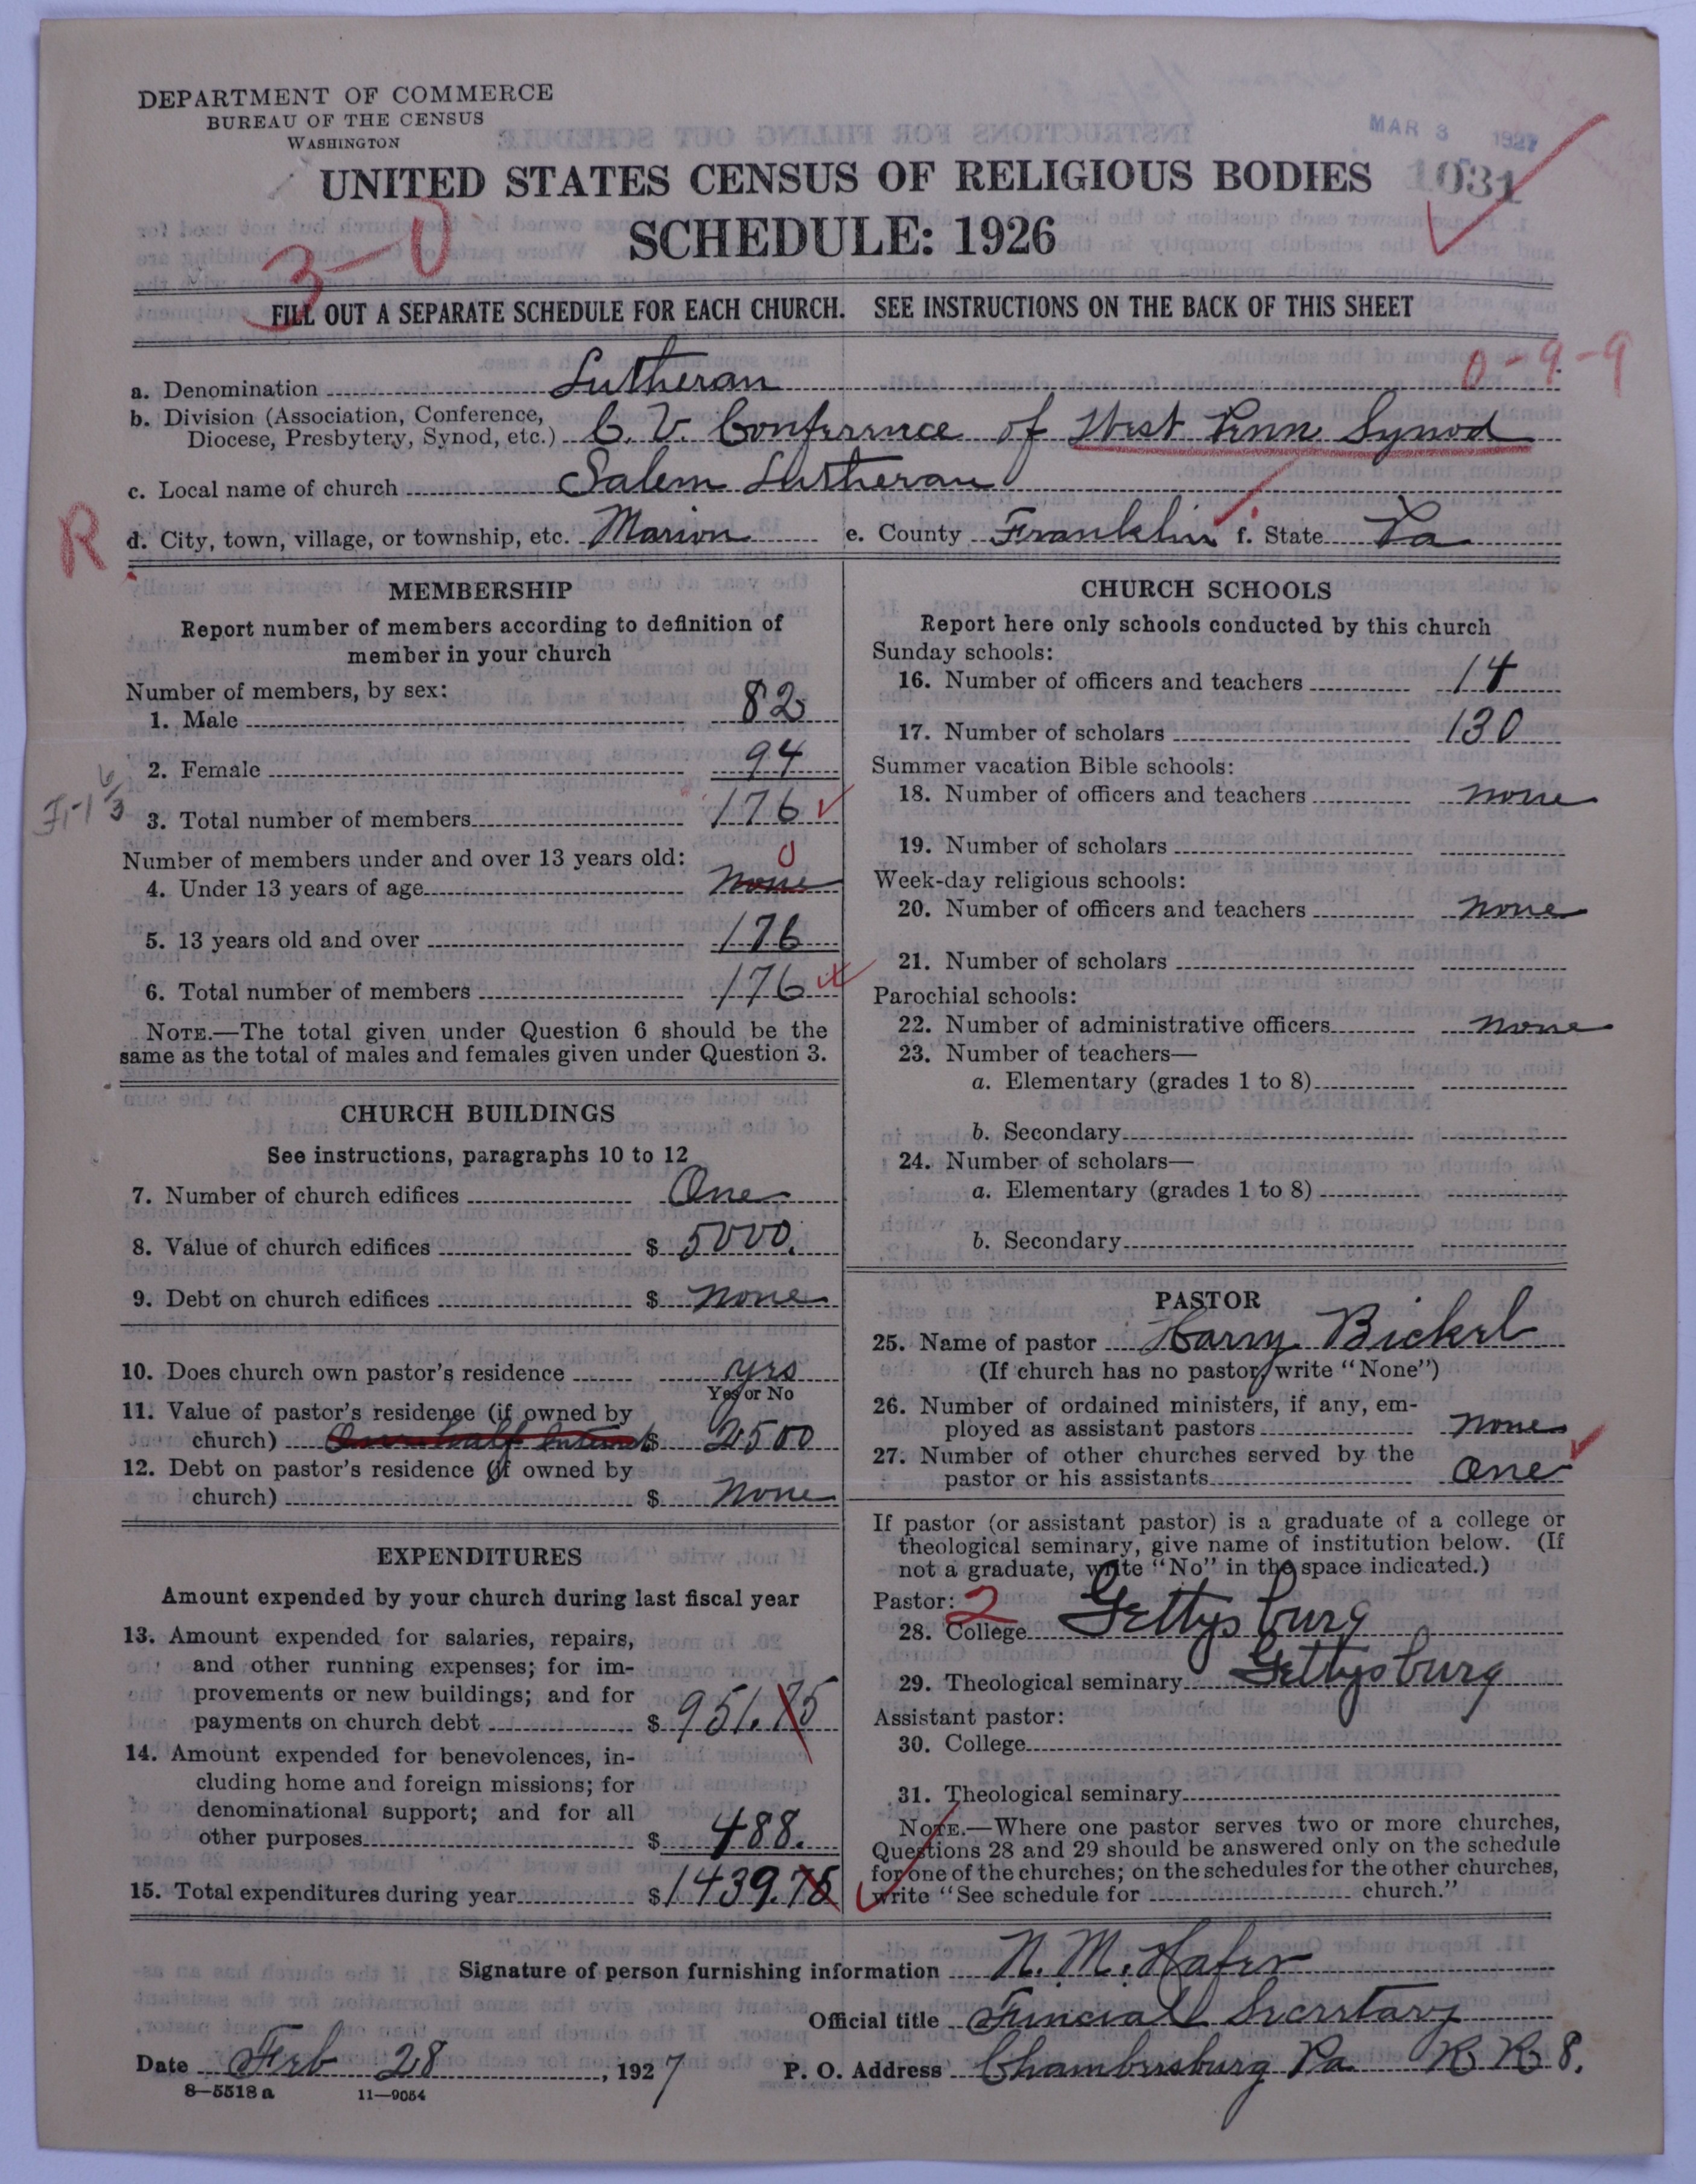 DEPARTMENT OF COMMERCE
BUREAU OF THE CENSUS
WASHINGTON
MAR 3 1927
UNITED STATES CENSUS OF RELIGIOUS BODIES 1031
SCHEDULE: 1926
3-0
FILL OUT A SEPARATE SCHEDULE FOR EACH CHURCH. SEE INSTRUCTIONS ON THE BACK OF THIS SHEET
0-9-9
a. Denomination Lutheran
b. Division (Association, Conference,
Diocese, Presbytery, Synod, etc.) C. V. Conference of West Penn Synod
c. Local name of church Salem Lutheran
R
d. City, town, village, or township, etc. Marion e. County Franklin f. State Pa
MEMBERSHIP
Report number of members according to definition of
member in your church
Number of members, by sex:
1. Male 82
2. Female 94
3. Total number of members 176
Number of members under and over 13 years old: 0
4. Under 13 years of age none
5. 13 years old and over 176
6. Total number of members 176
NOTE.—The total given under Question 6 should be the
same as the total of males and females given under Question 3.
CHURCH BUILDINGS
See instructions, paragraphs 10 to 12
7. Number of church edifices One
8. Value of church edifices $ 5000.
9. Debt on church edifices $ none
10. Does church own pastor's residence yes
Yes or No
11. Value of pastor's residence (if owned by
church) One half Interest $ 2500
12. Debt on pastor's residence (if owned by
church) $ None
EXPENDITURES
Amount expended by your church during last fiscal year
13. Amount expended for salaries, repairs,
and other running expenses; for im-
provements or new buildings; and for
payments on church debt $ 951.75
14. Amount expended for benevolences, in-
cluding home and foreign missions; for
denominational support; and for all
other purposes $ 488.
15. Total expenditures during year $ 1439.75
CHURCH SCHOOLS
Report here only schools conducted by this church
Sunday schools:
16. Number of officers and teachers 14
17. Number of scholars 130
Summer vacation Bible schools:
18. Number of officers and teachers none
19. Number of scholars
Week-day religious schools:
20. Number of officers and teachers none
21. Number of scholars
Parochial schools:
22. Number of administrative officers none
23. Number of teachers—
a. Elementary (grades 1 to 8)
b. Secondary
24. Number of scholars—
a. Elementary (grades 1 to 8)
b. Secondary
PASTOR
25. Name of pastor Harry Bickel
(If church has no pastor, write "None")
26. Number of ordained ministers, if any, em-
ployed as assistant pastors none
27. Number of other churches served by the
pastor or his assistants One
If pastor (or assistant pastor) is a graduate of a college or
theological seminary, give name of institution below. (If
not a graduate, write "No" in the space indicated.)
Pastor: 2
28. College Gettysburg
29. Theological seminary Gettysburg
Assistant pastor:
30. College
31. Theological seminary
NOTE.—Where one pastor serves two or more churches,
Questions 28 and 29 should be answered only on the schedule
for one of the churches; on the schedules for the other churches,
write "See schedule for church."
Signature of person furnishing information N. M. Hafer
Official title Fincial Secretary
Date Feb 28, 1927 P. O. Address Chambersburg Pa R R 8.
8—5518 a 11—9054